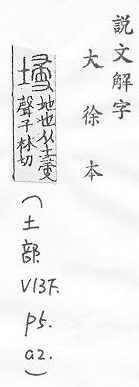 說文解字
大徐本
埐
地也从土㑴
聲子林切
(土部 V13下. p5. a2.)